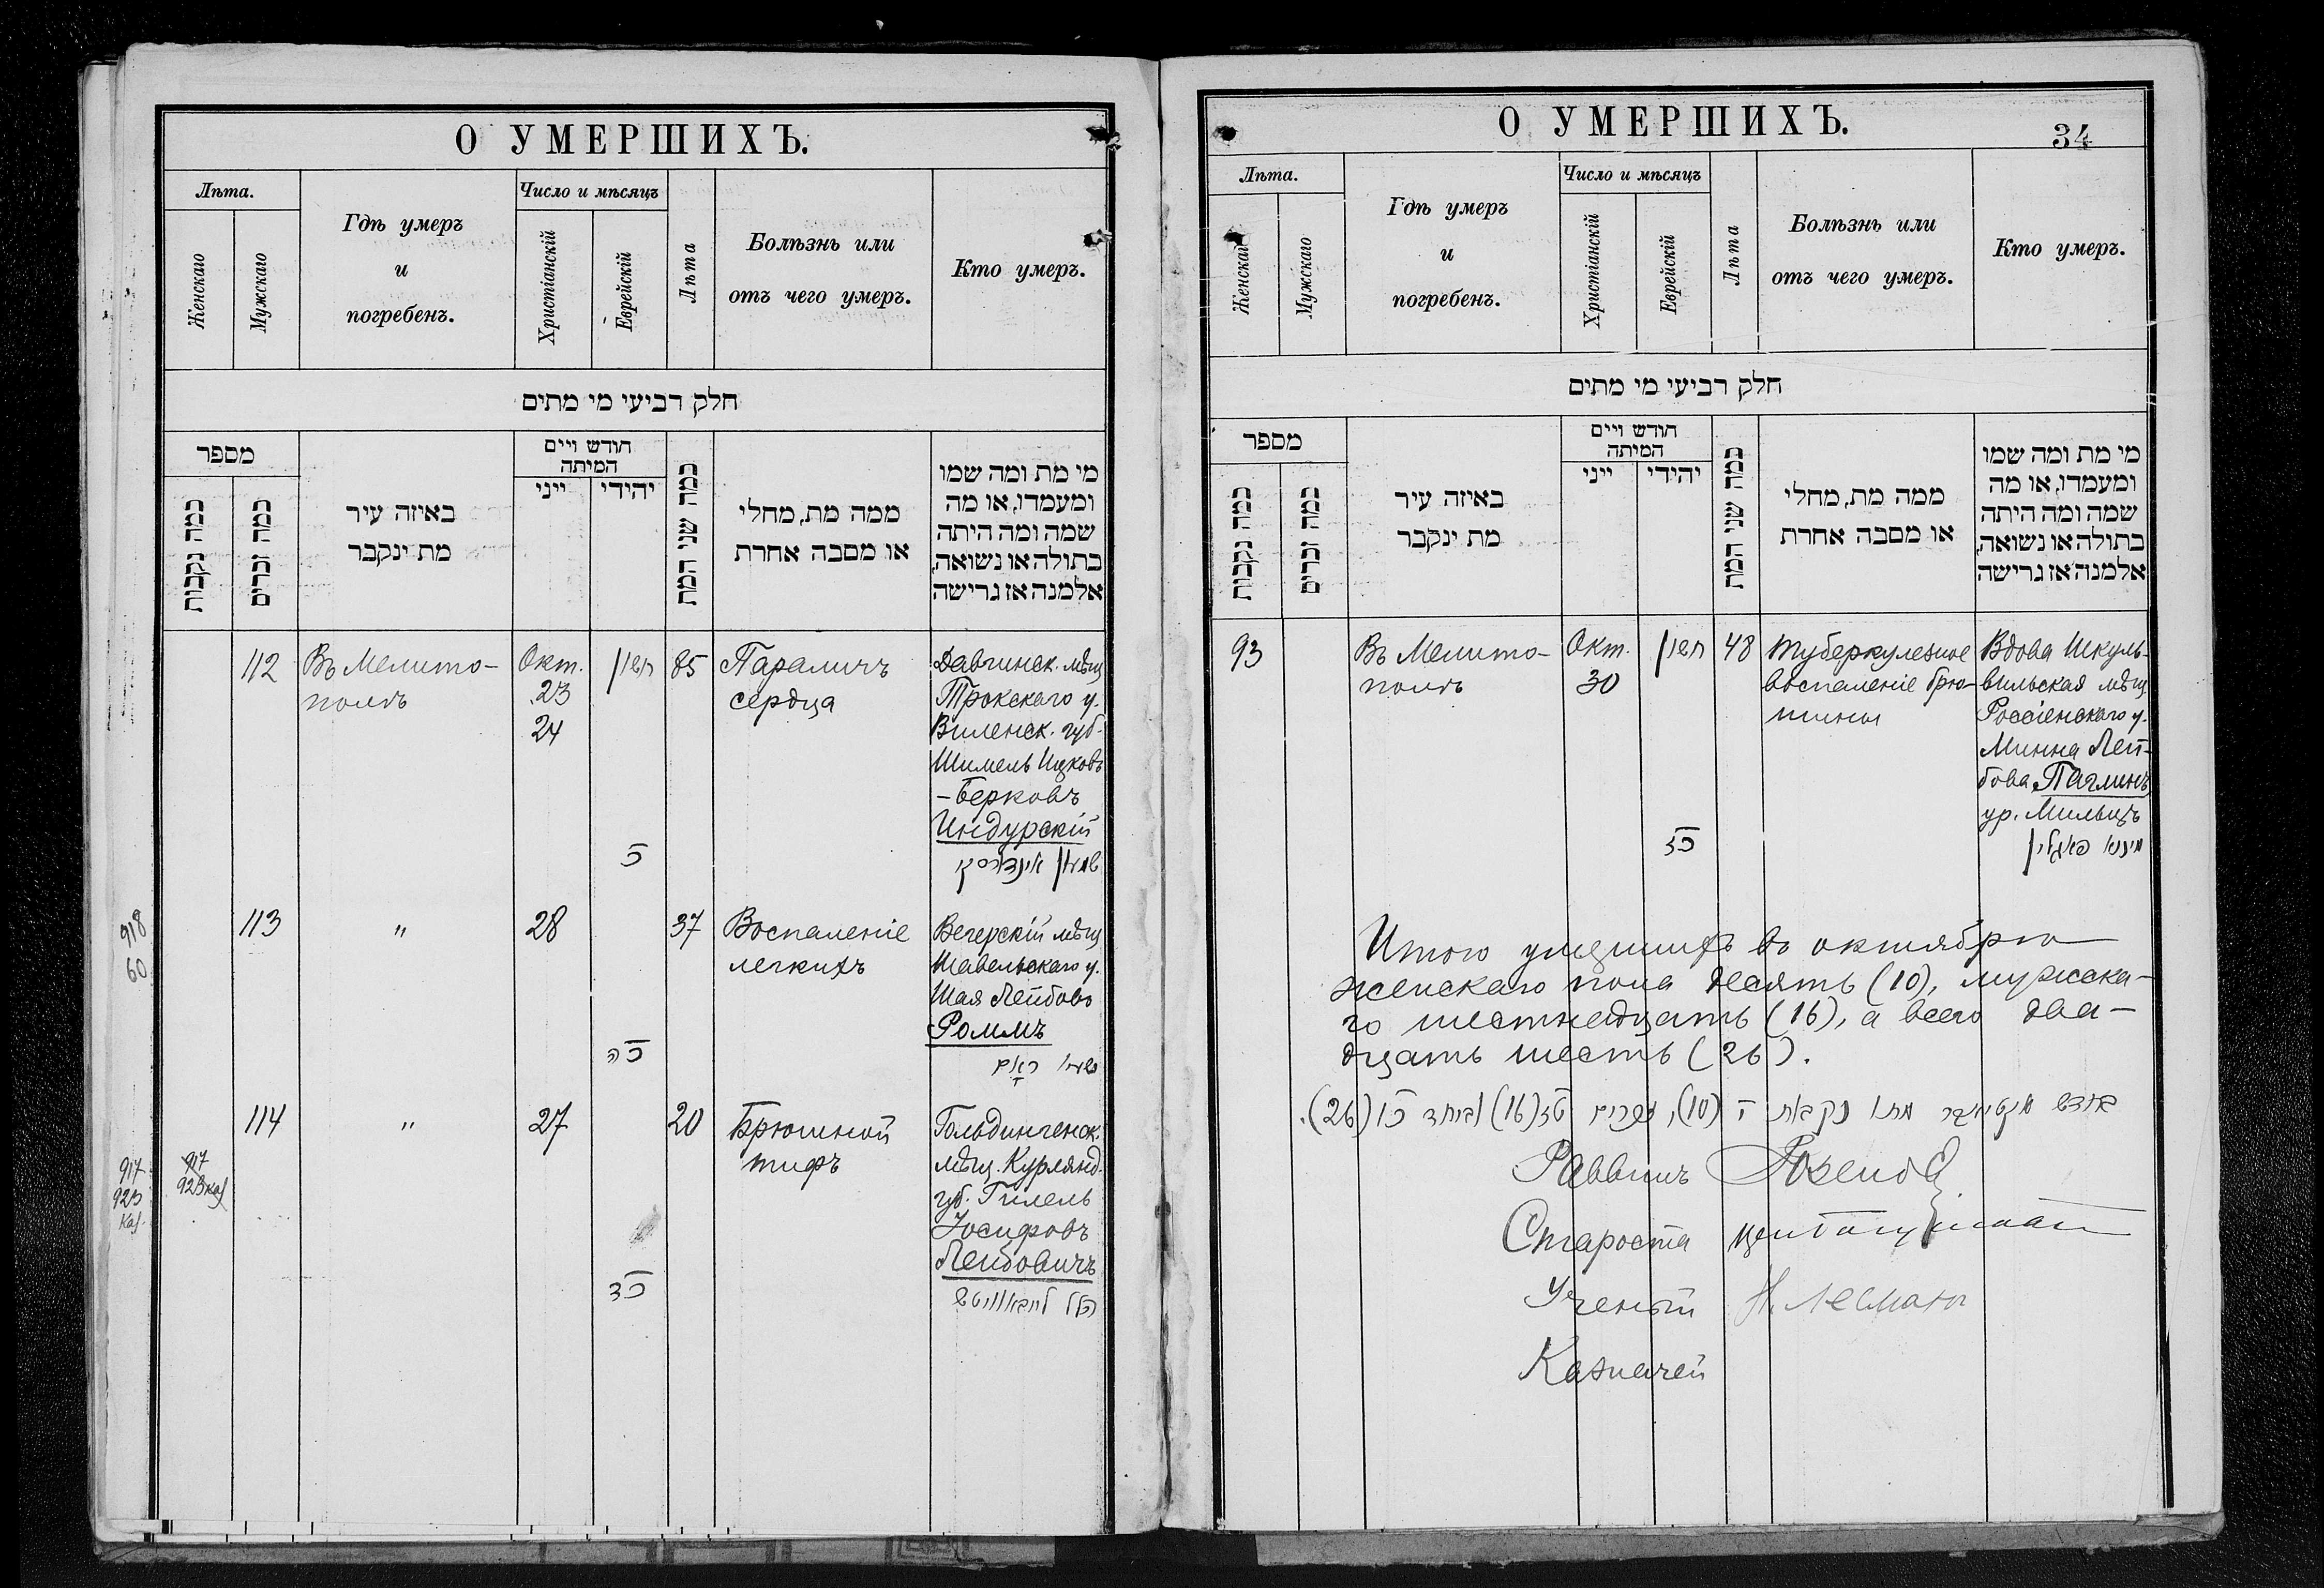 О УМЕРШИХЪ.
Лѣта.
Женскаго
Мужскаго
Гдѣ умеръ
и
погребенъ.
Число и мѣсяцъ
Христіанскій
Еврейскій
Лѣта
Болѣзнь или
отъ чего умеръ.
Кто умеръ.
חלק רביעי מי מתים
מספר
כמה נקבות
כמה זכרים
באיזה עיר
מת ינקבר
חודש ויים
המיתה
ייני
יהודי
כמה שני המת
ממה מת, מחלי
או מסבה אחרת
מי מת ומה שמו
ומעמדו, או מה
שמה ומה היתה
בתולה או נשואה,
אלמנה אז גרישה
112
Въ Мелито-
полѣ
Окт.
23
24
חשון
כ
85
Параличъ
сердца
Давгинск. мѣщ
Трокскаго у.
Виленск. губ.
Шимель Ицковъ
-Берковъ
Индурскій
918
60
113
"
28
כה
37
Воспаленіе
легкихъ
Вегерскій мѣщ
Шавельскаго у.
Шая Лейбовъ
Роммъ
ראם
917
923
каз.
917
923 каз
114
"
27
כד
20
Брюшной
тифъ
Гольдингенск.
мѣщ. Курлянд.
губ. Гилель
Іосифовъ
Лейбовичъ
הלל לייבאוויטש
О УМЕРШИХЪ.
34
Лѣта.
Женскаго
Мужскаго
Гдѣ умеръ
и
погребенъ.
Число и мѣсяцъ
Христіанскій
Еврейскій
Лѣта
Болѣзнь или
отъ чего умеръ.
Кто умеръ.
חלק רביעי מי מתים
מספר
כמה נקבות
כמה זכרים
באיזה עיר
מת ינקבר
חודש ויים
המיתה
ייני
יהודי
כמה שני המת
ממה מת, מחלי
או מסבה אחרת
מי מת ומה שמו
ומעמדו, או מה
שמה ומה היתה
בתולה או נשואה,
אלמנה אז גרישה
93
Въ Мелито-
полѣ
Окт.
30
חשון
48
Туберкулезное
воспаленіе брю-
шины
Вдова Шкуль-
вильская мѣщ.
Россіенскаго у.
Минна Лей-
бова Паглинъ
ур. Мильцъ
מינא פאגלין
Итого умершихъ въ октябрѣ
женскаго пола десять (10), мужска-
го шестнадцать (16), а всего два-
дцать шесть (26).
מתו נקבות י (10), זכרים טז (16) וביחד כו (26).
Раввинъ
Староста
Ученый Н. Лесманъ
Казначей